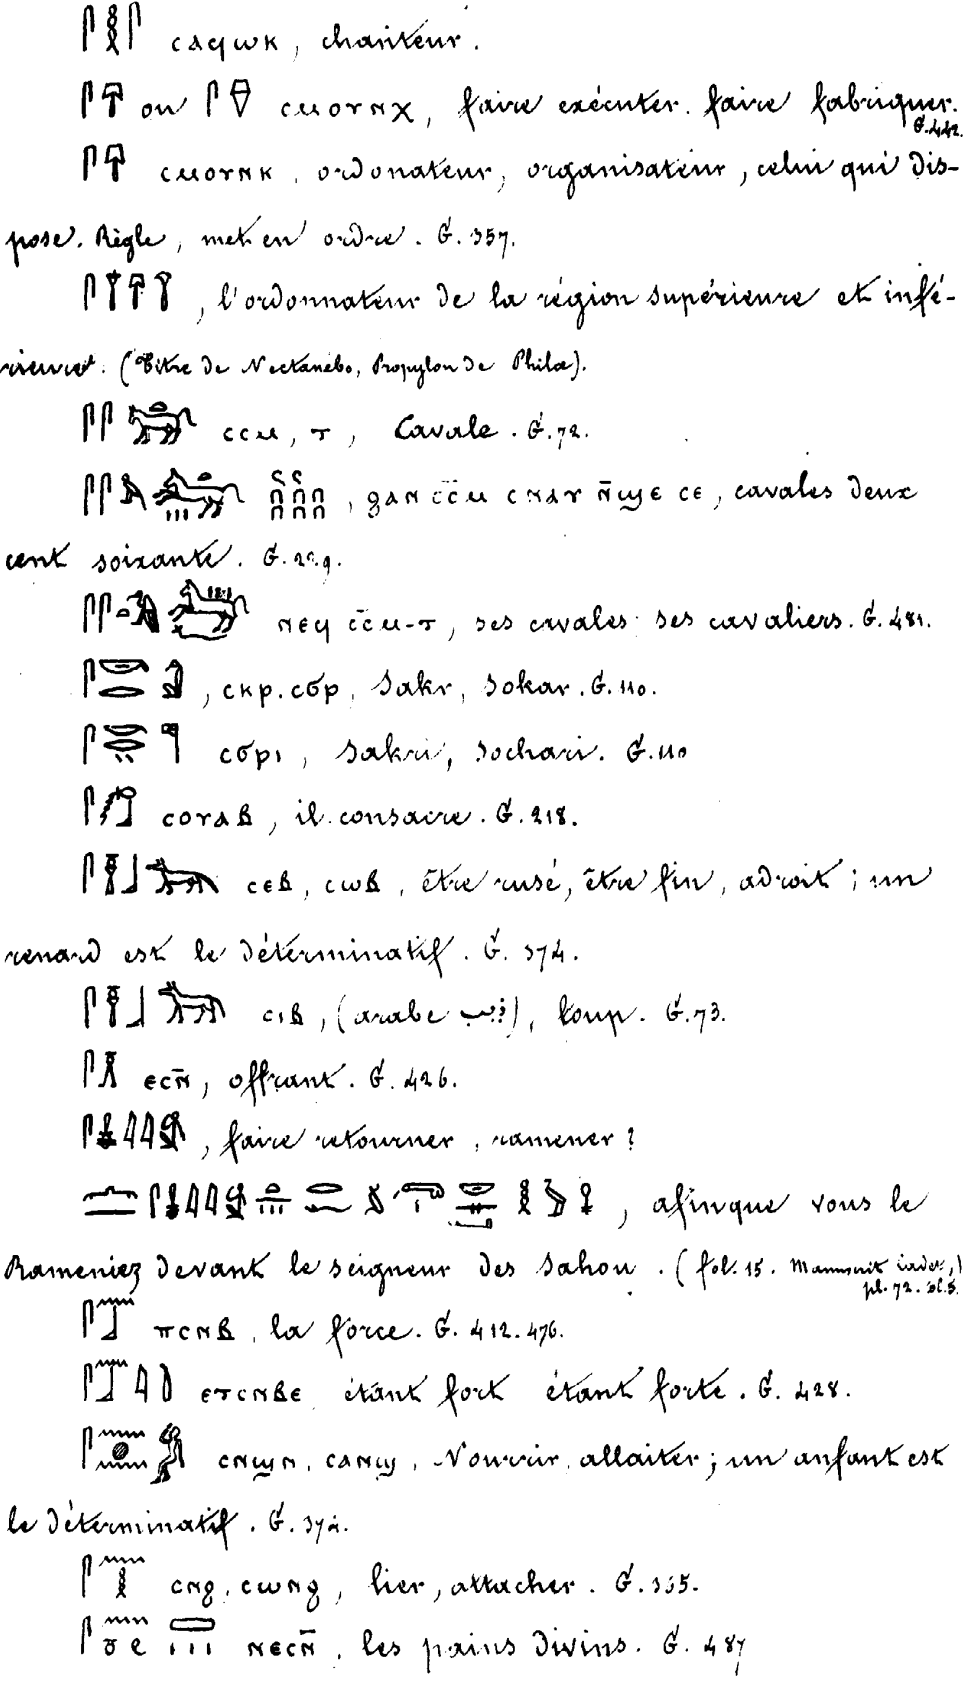 ⲥⲁϥⲱⲕ, chanteur.
ou ⲥⲙⲟⲩⲛⲭ, faire exécuter. faire fabriquer.
G. 442.
ⲥⲙⲟⲩⲛⲕ, ordonateur, organisateur, celui qui dis-
pose. Règle, met en ordre. G. 357.
, l'ordonnateur de la région supérieure et infé-
rieure. (Titre de Nectanebo, Propylon de Philæ).
ⲥⲥⲙ, ⲧ, Cavale. G. 72.
, ϩⲁⲛ ⲥⲥⲙ ⲥⲛⲁⲩ ⲛ̄ϣⲉ ⲥⲉ, cavales deux
cent soixante. G.
ⲛⲉϥ ⲥⲥⲙ-ⲧ, ses cavales ses cavaliers. G. 481.
, ⲥⲕⲣ. ⲥϭⲣ, Sakr, Sokar. G. 110.
ⲥϭⲣⲓ, Sakri, Sochari. G. 110
ⲥⲟⲩⲁⲃ, il consacre. G. 218.
ⲥⲉⲃ, ⲥⲱⲃ, être rusé, être fin, adroit; un
renard est le déterminatif. G. 374.
ⲥⲓⲃ, (arabe ذيب), loup. G. 73.
ⲉⲥⲛ̄, offrant. G. 426.
, faire retourner, ramener?
, afinque vous le
Rameniez devant le seigneur des Sahou. (fol. 15. Manuscrit Cadet,)
pl. 72. 
ⲡⲥⲛⲃ, la force. G. 412. 476.
ⲉⲧⲥⲛⲃⲉ étant fort étant forte. G. 428.
ⲥⲛϣⲛ, ⲥⲁⲛϣ, Nourrir, allaiter; un anfant est
le déterminatif. G. 374.
ⲥⲛϩ, ⲥⲱⲛϩ, lier, attacher. G.
ⲛⲉⲥⲛ̄, les pains divins. G. 487